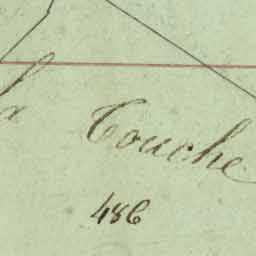 la Touche
486